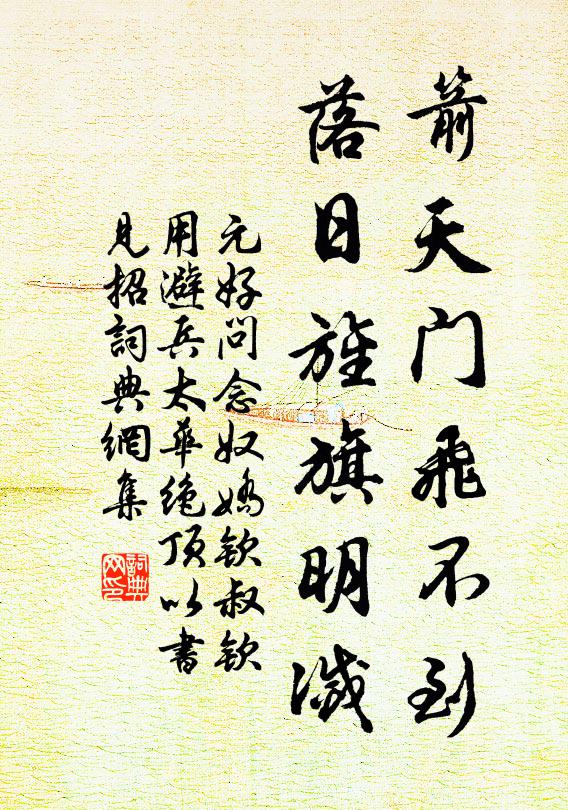 箭天门飛不到
落日旌旗明滅
元好问念奴嬌欽叔欽
用避兵太華绝顶以書
見招詞典網集
詞典网印